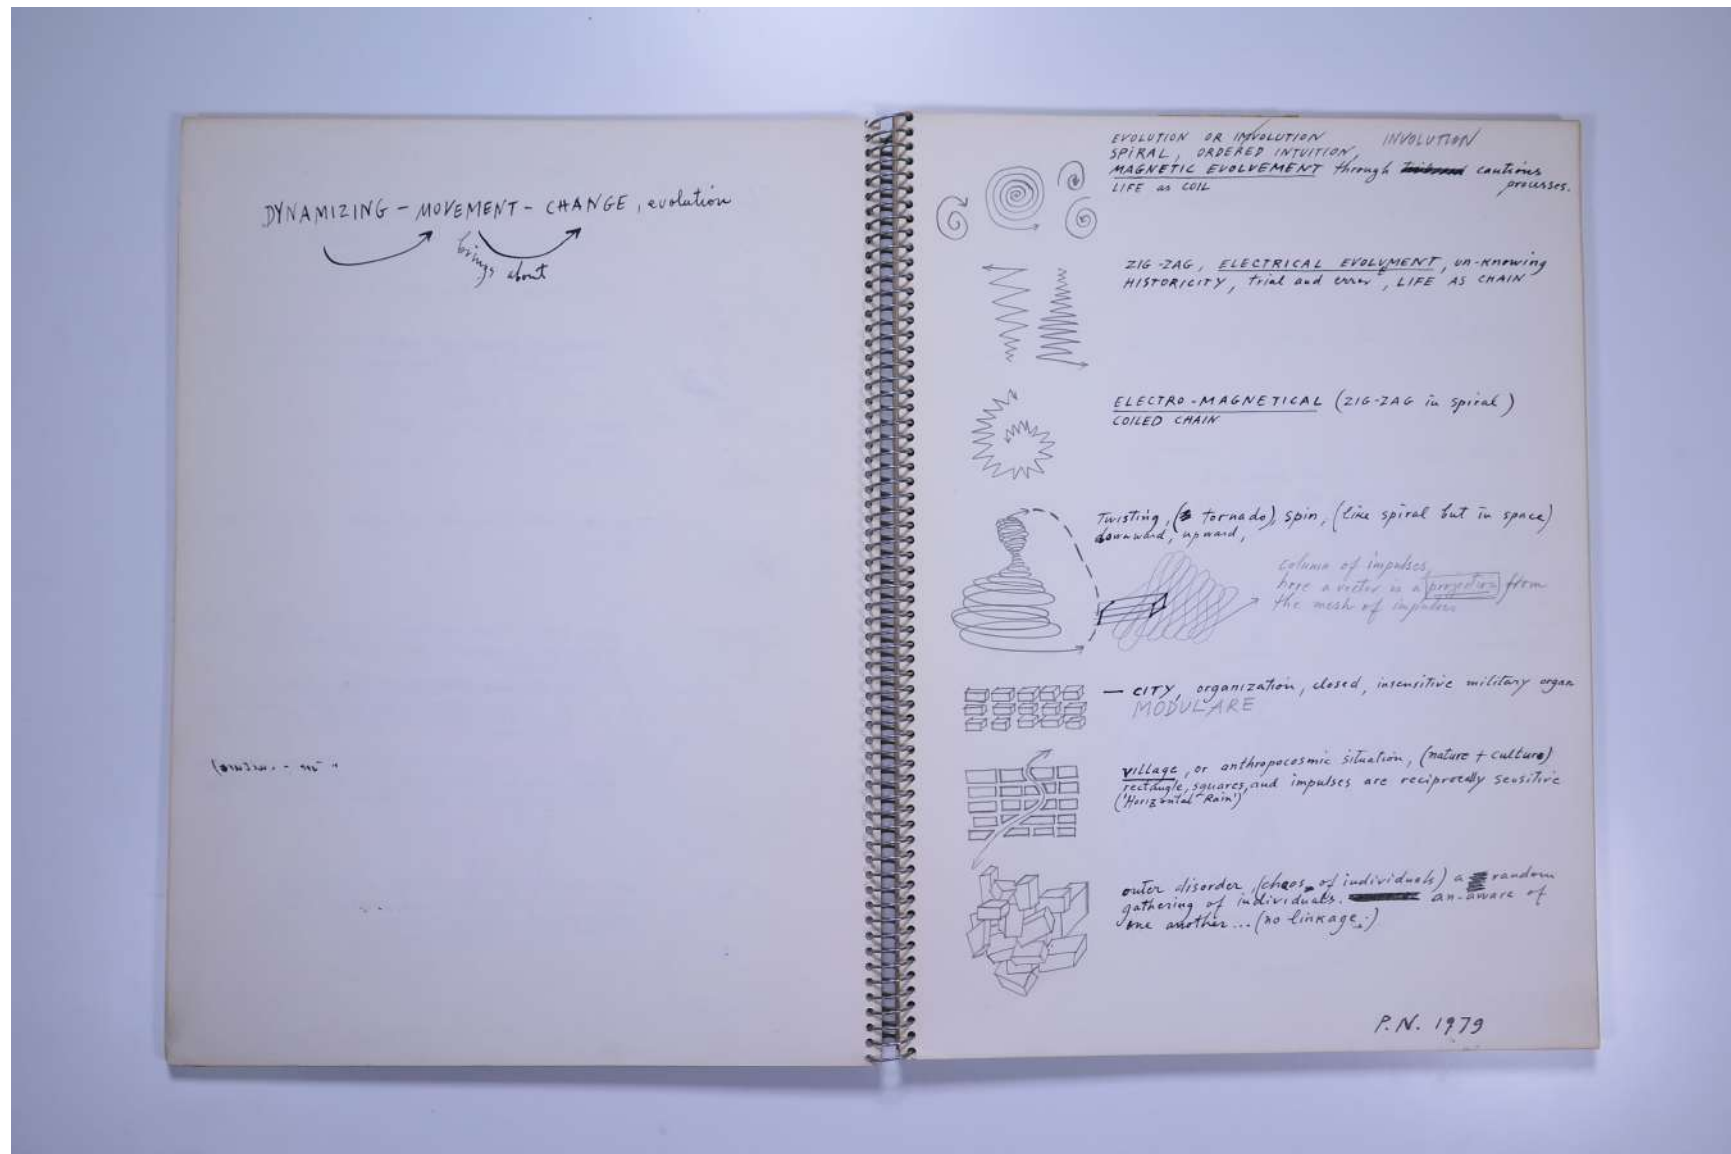 DYNAMIZING - MOVEMENT - CHANGE, evolution
brings about
EVOLUTION OR INVOLUTION INVOLUTION
SPIRAL, ORDERED INTUITION
MAGNETIC EVOLVEMENT through cautious
processes.
LIFE as COIL
ZIG-ZAG, ELECTRICAL EVOLVMENT, un-knowing
HISTORICITY, trial and error, LIFE AS CHAIN
ELECTRO-MAGNETICAL (ZIG-ZAG in spiral)
COILED CHAIN
Twisting, (tornado), spin, (like spiral but in space)
downward, upward,
column of impulses,
here a vector is a projection from
the mesh of impulses
— CITY, organization, closed, insensitive military organ
MODULARE
village, or anthropocosmic situation, (nature + culture)
rectangle, squares, and impulses are reciprocally sensitive
('Horizontal Rain')
outer disorder, (chaos of individuals) a random
gathering of individuals. an-aware of
one another... (no linkage.)
P.N. 1979